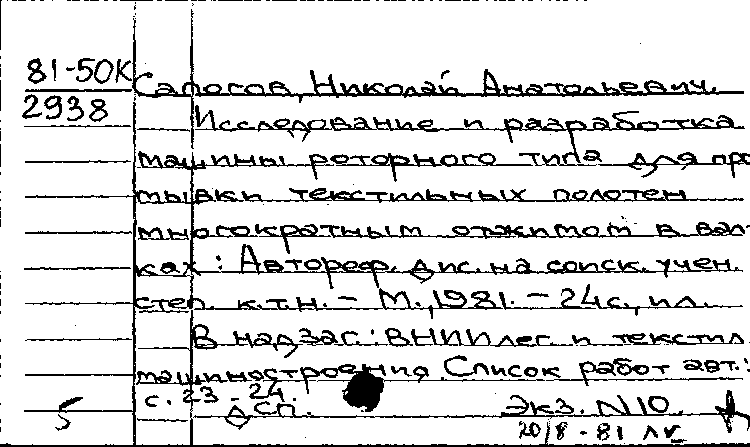 81-50К
2938
Сапогов, Николай Анатольевич.
Исследование и разработка
машины роторного типа для про
мывки текстильных полотен
многократным отжимом в вал-
ках: Автореф. дис. на соиск. учен.
степ. к.т.н. - М., 1981. - 24с., ил.
В надзаг.: ВНИИлег и текстил.
машиностроения. Список работ авт.:
с. 23-24.
ДСП.
Экз. N10
5
20/8-81